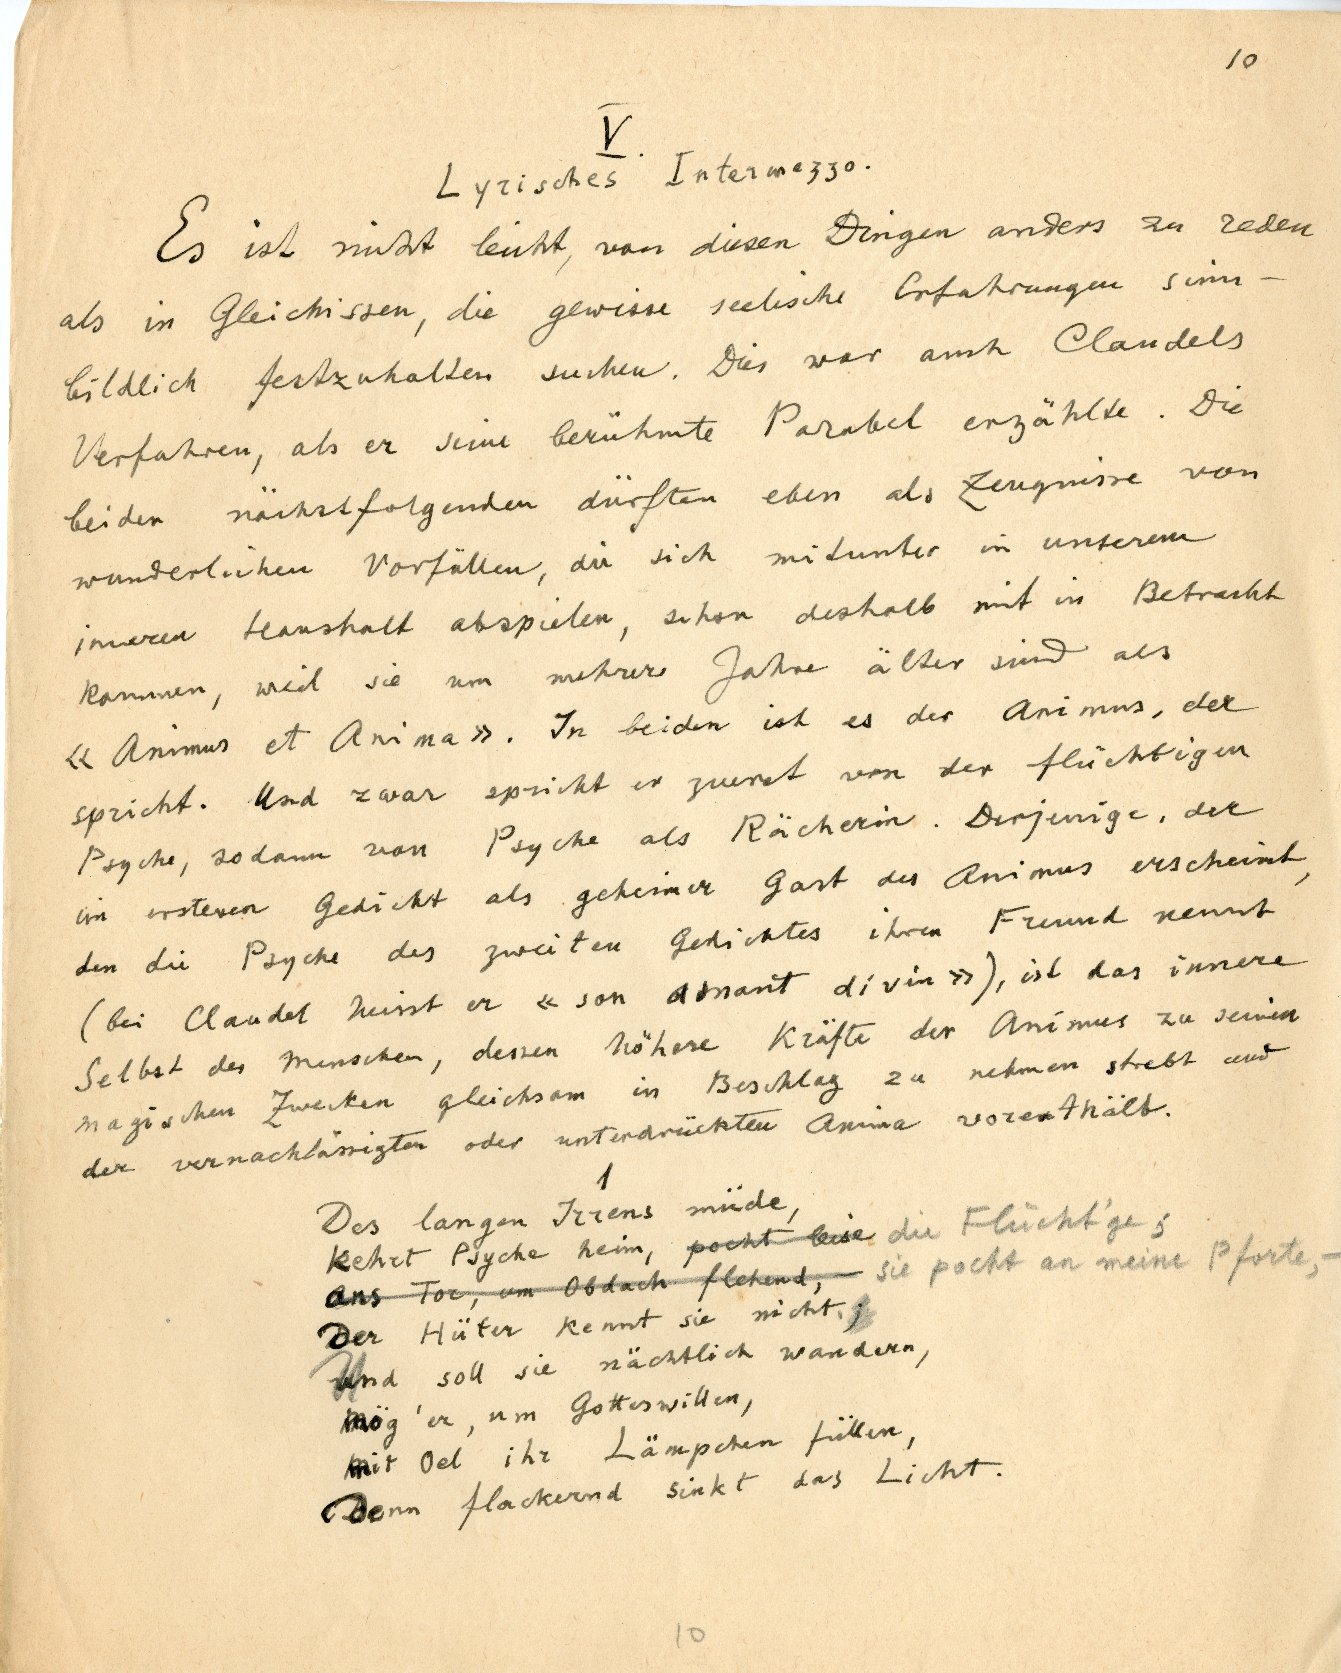 10
V.
Lyrisches Intermezzo.
Es ist nicht leicht, von diesen Dingen anders zu reden
als in Gleichissen, die gewisse seelische Erfahrungen sinn-
bildlich festzuhalten suchen. Dies war auch Claudels
Verfahren, als er seine berühmte Parabel erzählte. Die
beiden nächstfolgenden dürften eben als Zeugnisse von
wunderlichen Vorfällen, die sich mitunter in unserem
inneren Haushalt abspielen, schon deshalb mit in Betracht
kommen, weil sie um mehrere Jahre älter sind als
« Animus et Anima ». In beiden ist es der Animus, der
spricht. Und zwar spricht er zuerst von der flüchtigen
Psyche, sodann von Psyche als Rächerin. Derjenige, der
im ersteren Gedicht als geheimer Gast des Animus erscheint,
den die Psyche des zweiten Gedichtes ihren Freund nennt
(bei Claudel heisst er « son amant divin »), ist das innere
Selbst des Menschen, dessen höhere Kräfte der Animus zu seinen
magischen Zwecken gleichsam in Beschlag zu nehmen strebt und
der vernachlässigten oder unterdrückten Anima vorenthält.
1
Des langen Irrens müde,
Kehrt Psyche heim, pocht leise die Flücht'ge;
ans Tor, um Obdach flehend, — sie pocht an meine Pforte, —
Der Hüter kennt sie nicht;
Und soll sie nächtlich wandern,
Mög' er, um Gotteswillen,
Mit Oel ihr Lämpchen füllen,
Denn flackernd sinkt das Licht.
10